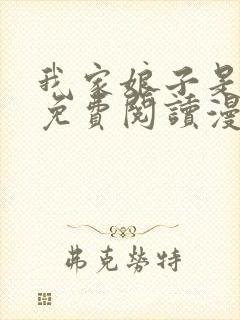 我家娘子是
免費閱讀漫
弗克勞特